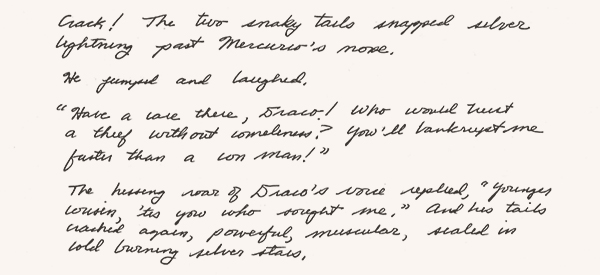 Crack! The two snaky tails snapped silver
lightning past Mercurio's nose.
He jumped and laughed.
"Have a care there, Draco! Who would trust
a thief without comeliness? You'll bankrupt me
faster than a con man!"
The hissing roar of Draco's voice replied, "Younger
cousin, 'tis you who sought me." And his tails
cracked again, powerful, muscular, scaled in
cold burning silver stars.